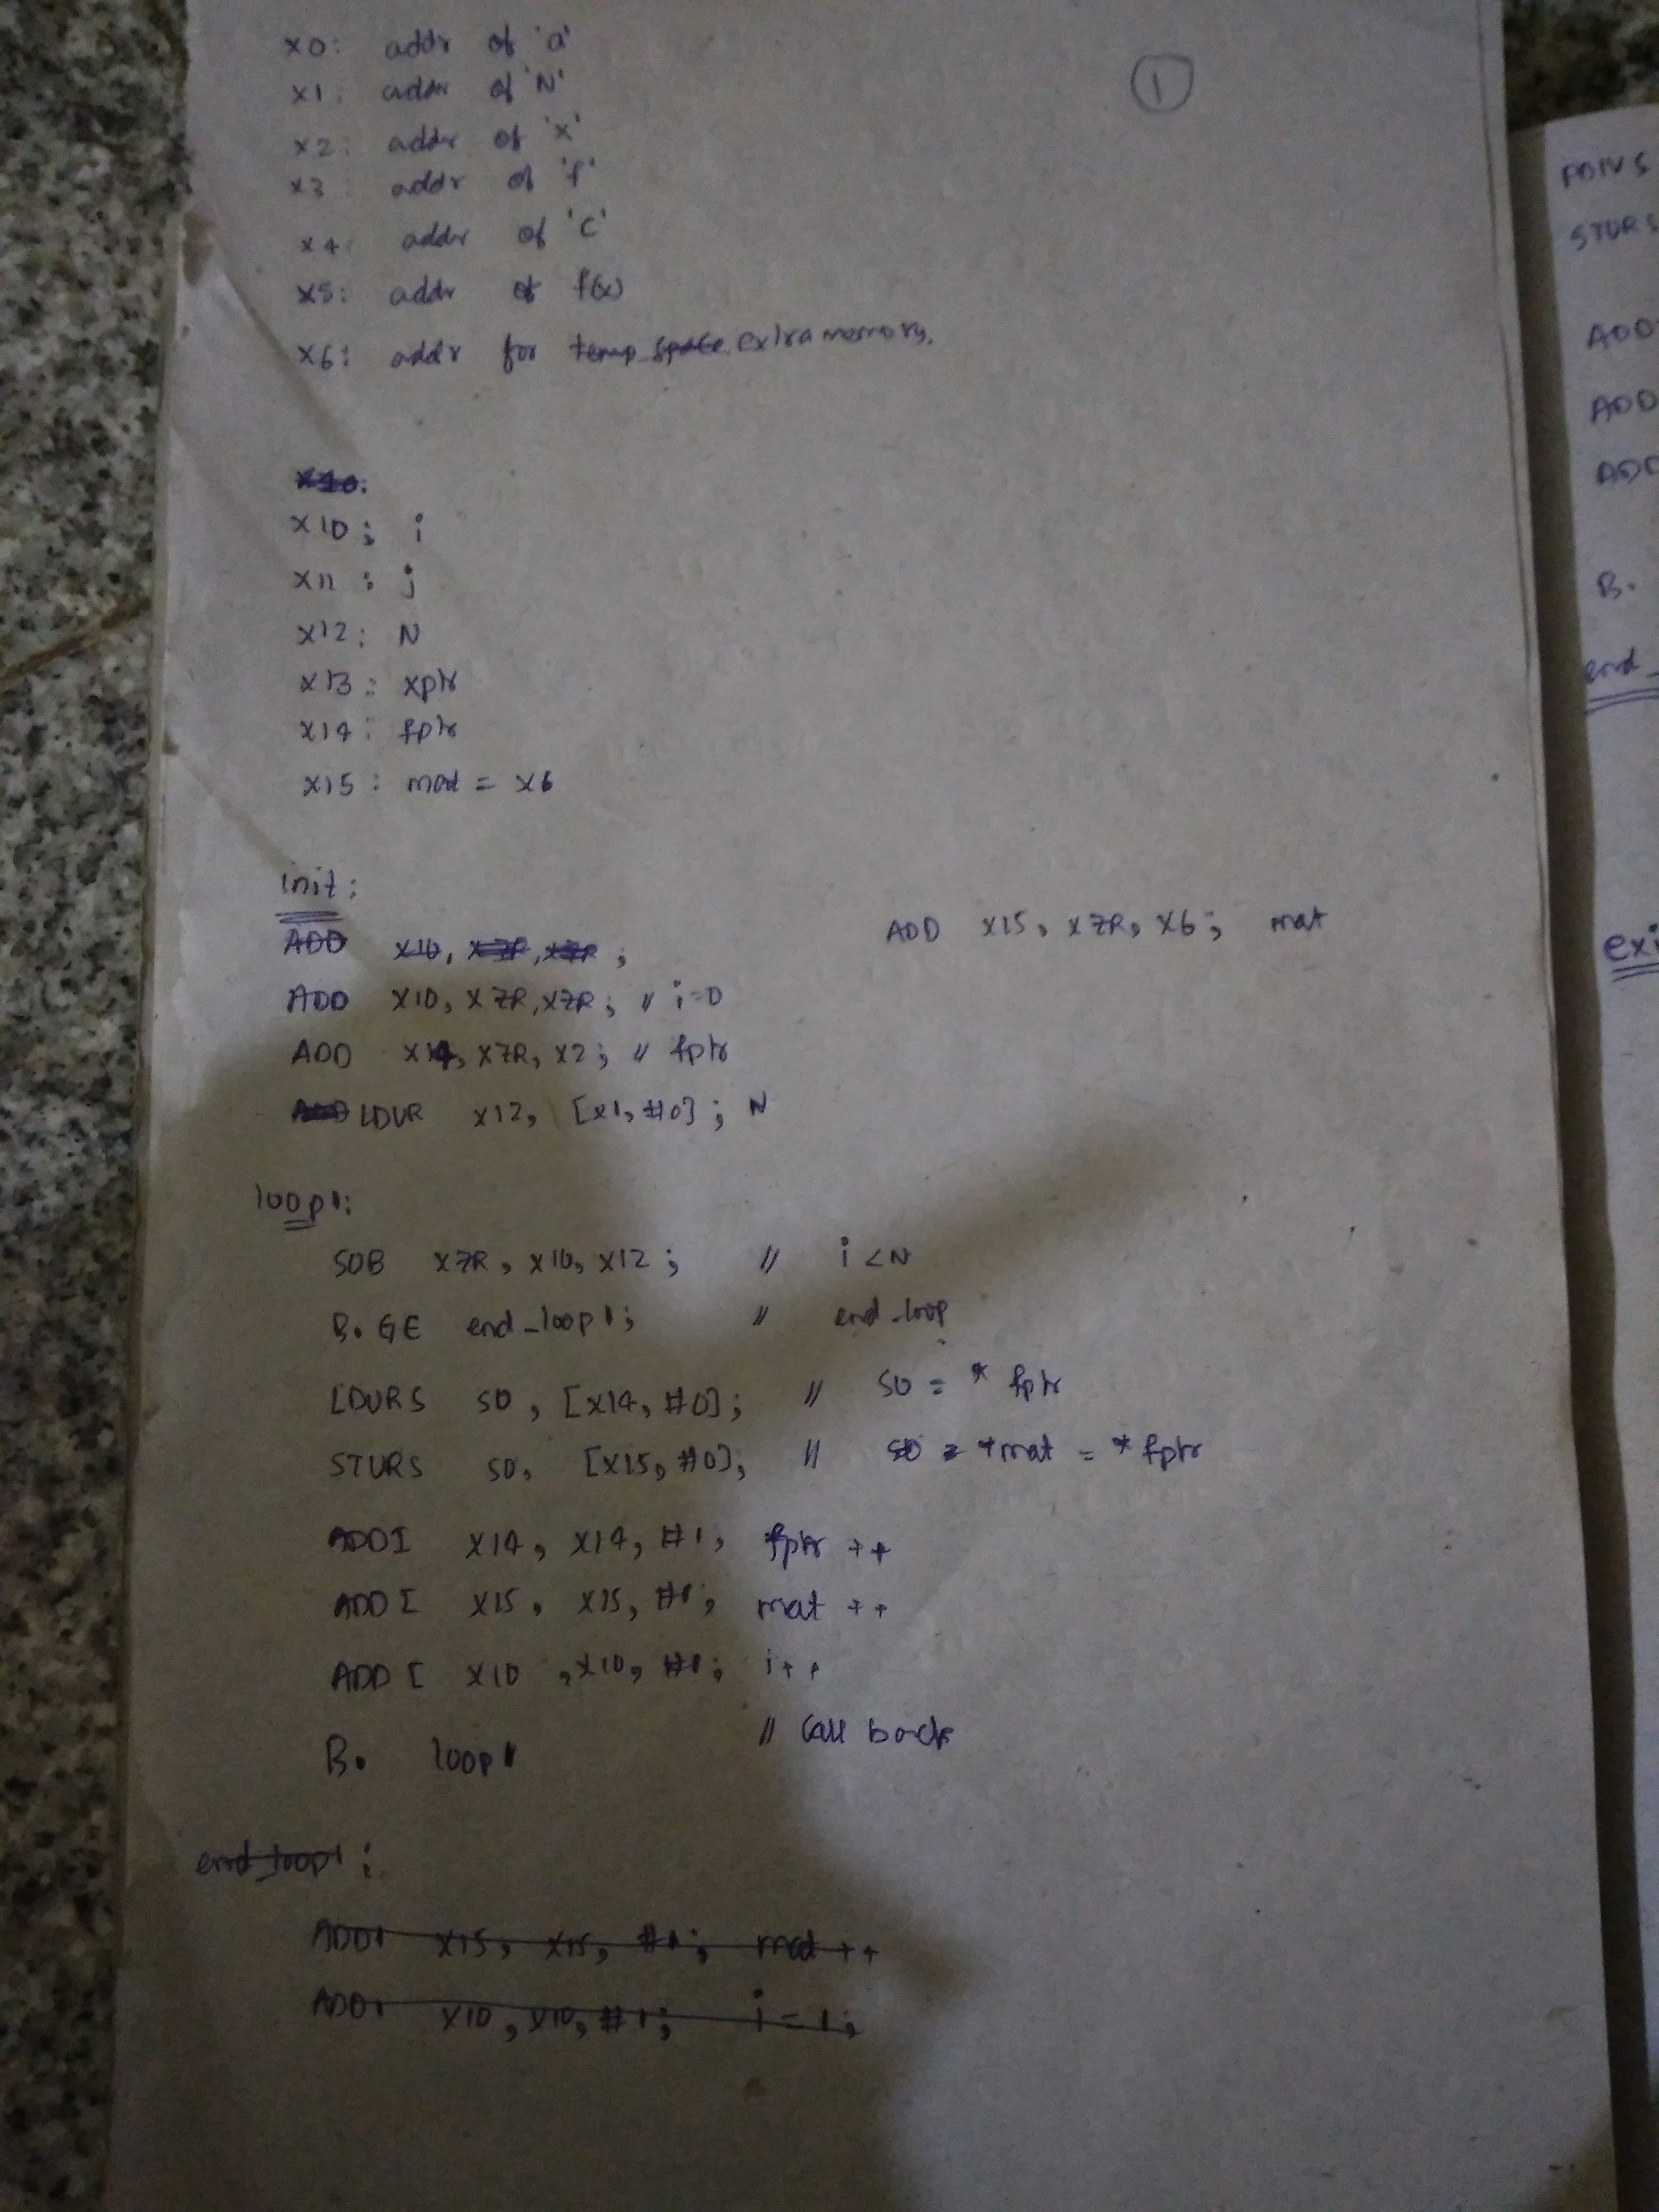 x0: addr of 'a'
①
x1: addr of 'N'
x2: addr of 'x'
x3: addr of 'f'
x4: addr of 'c'
x5: addr of f(x)
x6: addr for temp space extra memory.
x10:
x10: i
x11: j
x12: N
x13: xptr
x14: fptr
x15: mat = x6
init:
ADD x10, xZR, xZR;
ADD x15, xZR, x6; mat
ADD x10, xZR, xZR; // i=0
ADD x14, xZR, x2; // fptr
ADD LDUR x12, [x1, #0]; N
loop1:
SUB xZR, x10, x12; // i < N
B.GE end_loop1; // end_loop
LDURS S0, [x14, #0]; // S0 = * fptr
STURS S0, [x15, #0]; // S0 = *mat = * fptr
ADDI x14, x14, #1, fptr ++
ADDI x15, x15, #1; mat ++
ADDI x10, x10, #1; i++
// call back
B. loop1
end_loop1:
ADDI x15, x15, #1; mat ++
ADDI x10, x10, #1; i = 1;
FDIVS
STURS
ADD
ADD
ADD
B.
end_
exi